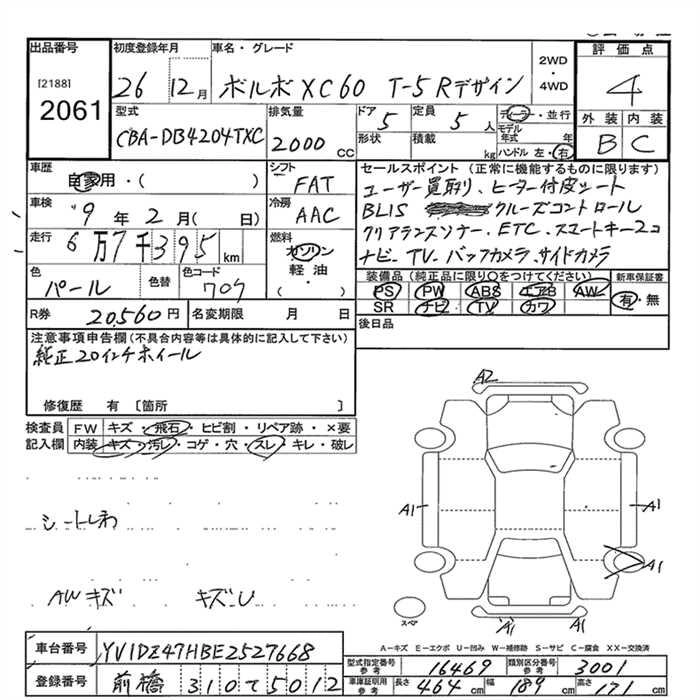 出品番号 初度登録年月 車名・グレード 評価点
[2188] 2061
26 12月 ボルボ XC60 T-5 Rデザイン 2WD・4WD 4
型式 排気量 ドア 定員 ディーラー・並行 外装 内装
CBA-DB4204TXC 2000 CC 5 5人 モデル年式 年 B C
形状 積載 kg ハンドル 左・右
車歴 自家用・( ) シフト FAT
セールスポイント(正常に機能するものに限ります)
ユーザー買取り、ヒーター付皮シート
車検 9年2月( 日) 冷房 AAC
BLIS クルーズコントロール
走行 6万7千395km 燃料 ガソリン 軽油・( )
クリアランスソナー、ETC、スマートキー2コ
ナビ、TV、バックカメラ、サイドカメラ
色 パール 色替 色コード 707
装備品(純正品に限り○をつけてください) 新車保証書
PS PW ABS エアB AW 有・無
SR ナビ TV カワ
R券 20,560円 名変期限 月 日
後日品
注意事項申告欄(不具合内容等は具体的に記入して下さい)
純正20インチホイール
修復歴 有 [箇所 ]
検査員 FW キズ・飛石・ヒビ割・リペア跡・×要
記入欄 内装 キズ・汚レ・コゲ・穴・スレ・キレ・破レ
シートしわ
AWキズ キズ・U
A2
A1 A1
A1
A1 A1
スペア
A-キズ E-エクボ U-凹み W-補修跡 S-サビ C-腐食 XX-交換済
車台番号 YV1DZ47HBE2527668
型式指定番号 参考 16469 類別区分番号 参考 3001
登録番号 前橋 310て5012
車庫証明用 参考 長さ 464cm 幅 189cm 高さ 171cm